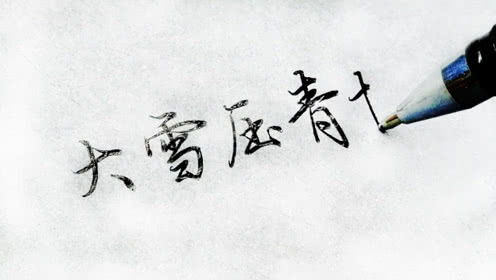 大雪压青